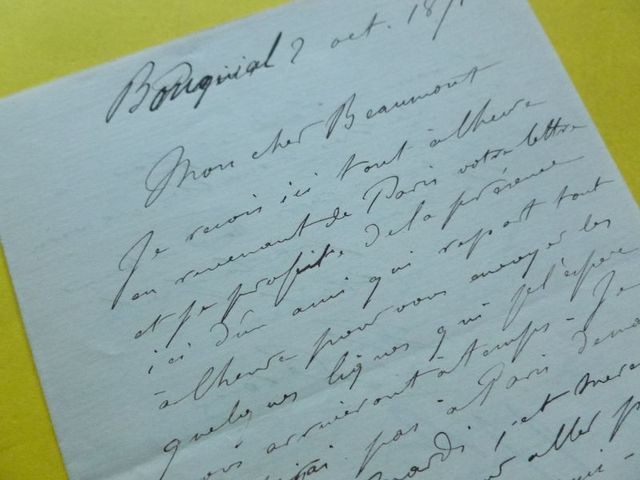 Bougival 2 oct. 187
Mon cher Beaumont
Je reçois ici tout à l'heure
en revenant de Paris votre lettre
et je profite de la présence
ici d'un ami qui repart tout
à l'heure pour vous envoyer les
quelques lignes qui je l'espère
vous arriveront à temps - Je
pas à Paris
Mardi, c'est
aller